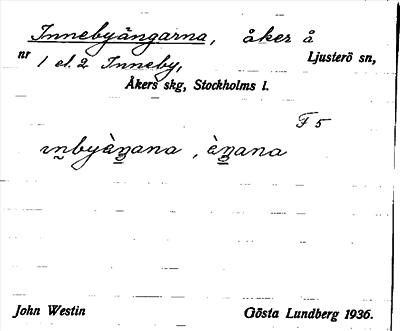 Innebyängarna, åker å
nr 1 el. 2 Inneby, Ljusterö sn,
Åkers skg, Stockholms l.
F 5
ın̰byàŋana, àŋana
John Westin Gösta Lundberg 1936.